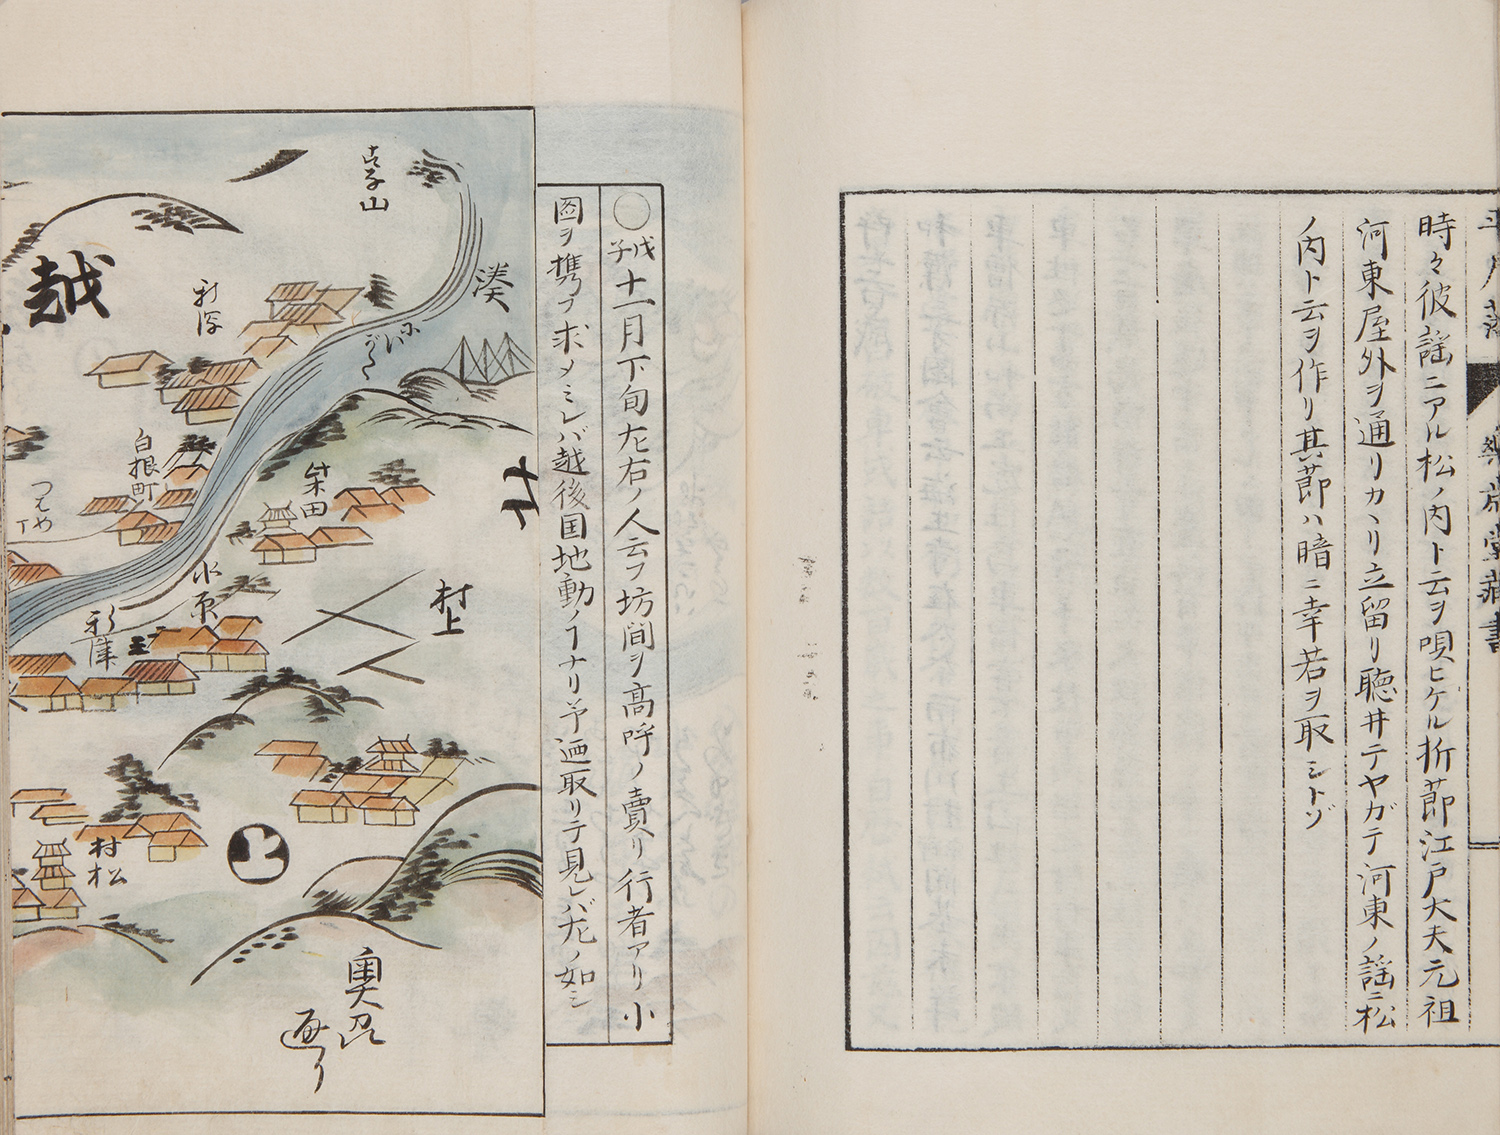 時々彼謡ニアル松ノ内ト云ヲ唄ヒケル折節江戸大夫元祖
河東屋外ヲ通リカヽリ立留リ聴井テヤガテ河東ノ謡ニ松
ノ内ト云ヲ作リ其節ハ暗ニ幸若ヲ取シトゾ
樂歳堂蔵書
○戊子十一月下旬左右ノ人云フ坊間ヲ高呼ノ賣リ行者アリ小
圖ヲ携フ求メミレバ越後国地動ノヿナリ予迺取リテ見レバ左ノ如シ
湊
越
白根町
柴田
村上
水原
新津
村松
奥